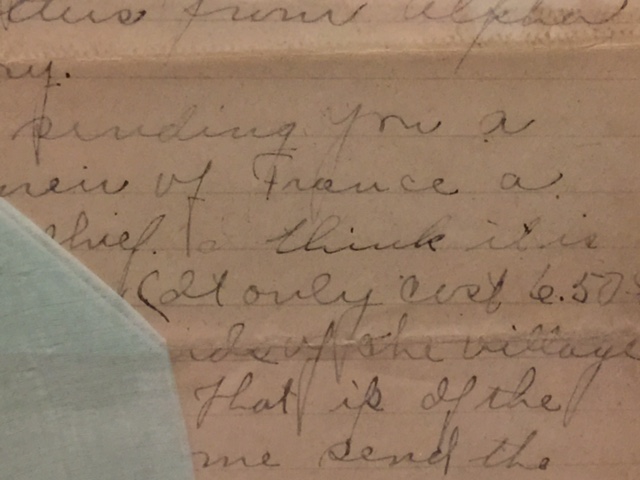 from Alpha
sending you a
of France a
chief. I think it is
(It only cost 6.50
of the village
That is of the
me send the